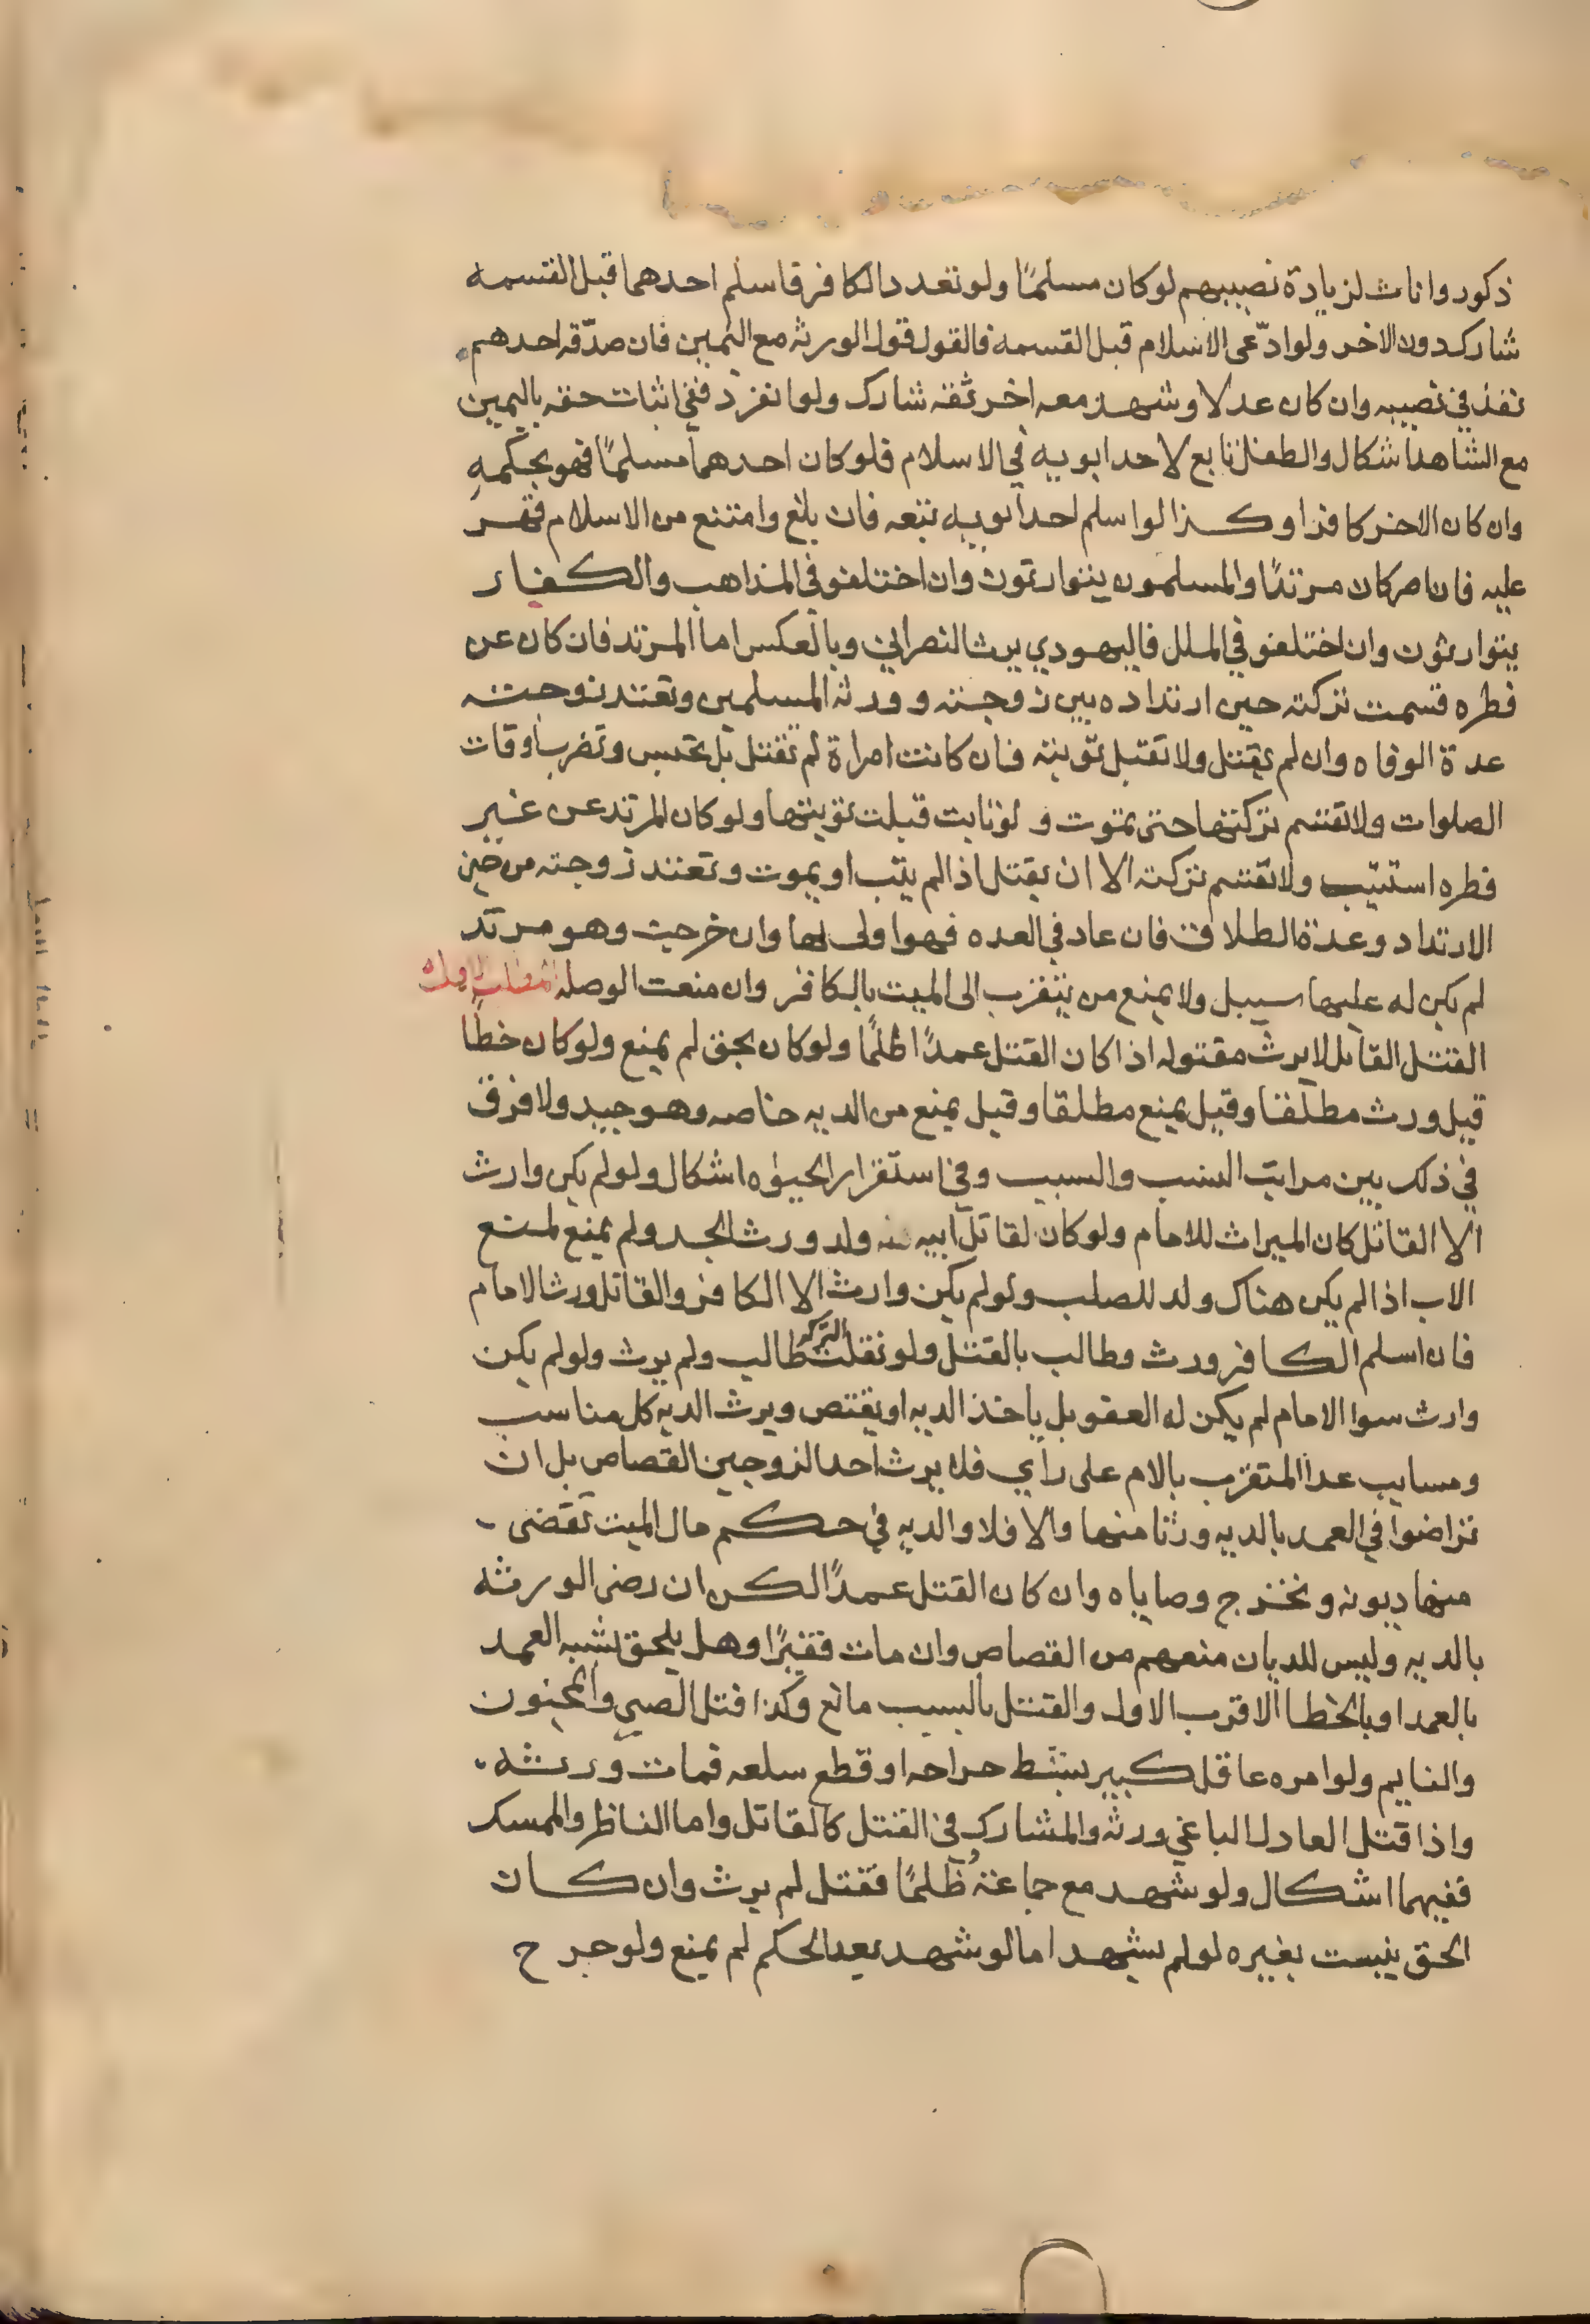 ذكور واناث لزيادة نصيبهم لو كان مسلمًا ولو تعدد الكافر فاسلم احدهما قبل القسمه
شارك دون الاخر ولو ادّعى الاسلام قبل القسمة فالقول قول الورثه مع اليمين فان صدّقه احدهم
نفذ في نصيبه وان كان عدلا وشهد معه اخر ثقه شارك ولو انفرد ففي اثبات حقه باليمين
مع الشاهد اشكال والطفل تابع لاحد ابويه في الاسلام فلو كان احدهما مسلمًا فهو بحكمه
وان كان الاخر كافرا وكذا لو اسلم احد ابويه تبعه فان بلغ وامتنع من الاسلام قهر
عليه فان اصر كان مرتدًا والمسلمون يتوارثون وان اختلفو في المذاهب والكفار
يتوارثون وان اختلفو في الملل فاليهودي يرث النصراني وبالعكس اما المرتد فان كان عن
فطره قسمت تركته حين ارتداده بين زوجته وورثه المسلمين وتعتد زوجته
عدة الوفاه وان لم يقتل ولا تقبل توبته فان كانت امراة لم تقتل بل تحبس وتضرب اوقات
الصلوات ولا تقسم تركتها حتى تموت ولو تابت قبلت توبتها ولو كان المرتد عن غير
فطره استتيب ولا تقسم تركته الا ان يقتل اذا لم يتب او يموت وتعتد زوجته من حين
الارتداد وعدة الطلاق فان عاد في العده فهو اولى بها وان خرجت وهو مرتد
لم يكن له عليها سبيل ولا يمنع من يتقرب الى الميت بالكافر وان منعت الوصله المطلب
القتل القاتل لا يرث مقتوله اذا كان القتل عمدًا ظلمًا ولو كان بحق لم يمنع ولو كان خطًا
قيل ورث مطلقا وقيل يمنع مطلقا وقيل يمنع من الديه خاصه وهو جيد ولا فرق
في ذلك بين مراتب النسب والسبب وفي استقرار الحيوه اشكال ولو لم يكن وارث
الا القاتل كان الميراث للامام ولو كان لقاتل ابيه ولد ورث الجد ولم يمنع لمنع
الاب اذا لم يكن هناك ولد للصلب ولو لم يكن وارث الا الكافر والقاتل ورث الامام
فان اسلم الكافر ورث وطالب بالقتل ولو نقلت التركه طالب ولم يرث ولو لم يكن
وارث سوا الامام لم يكن له العفو بل ياخذ الديه او يقتص ويرث الديه كل مناسب
ومسابب عدا المتقرب بالام على راي فلا يرث احد الزوجين القصاص بل ان
تراضوا في العمد بالديه ورثا منها والا فلا والديه في حكم مال الميت تقضى
منها ديونه وتخرج وصاياه وان كان القتل عمدًا لكن ان رضى الورثه
بالديه وليس للديان منعهم من القصاص وان مات فقيرًا وهل يلحق شبه العمد
بالعمد او بالخطا الاقرب الاول والقتل بالسبب مانع وكذا قتل الصبي والمجنون
والنايم ولو امره عاقل كبير ببط جراحه او قطع سلعه فمات ورثه
واذا قتل العادل الباغي ورثه والمشارك في القتل كالقاتل واما الناظر والممسك
ففيهما اشكال ولو شهد مع جماعة ظلمًا فقتل لم يرث وان كان
الحق يثبت بغيره لو لم يشهد اما لو شهد بعد الحكم لم يمنع ولو جرح